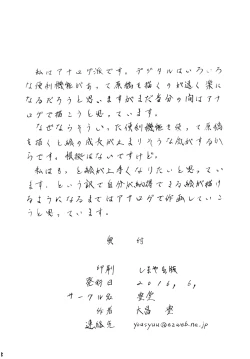 私はアナログ派です。デジタルはいろいろ
な便利機能があって原稿を描くのが速く楽に
なるだろうと思いますがまだ当分の間はアナ
ログで描こうと思っています。
なぜならそういった便利機能を使って原稿
を描くと絵の成長が止まりそうな気がするか
らです。根拠はないですけど。
私はもっと絵が上手くなりたいと思ってい
ます。という訳で自分が納得できる絵が描け
るようになるまではアナログで作画していこ
うと思っています。
奥 付
印刷 しまや出版
発行日 2016,6,
サークル名
作者
連絡先 yuasyuu@ezweb.ne.jp